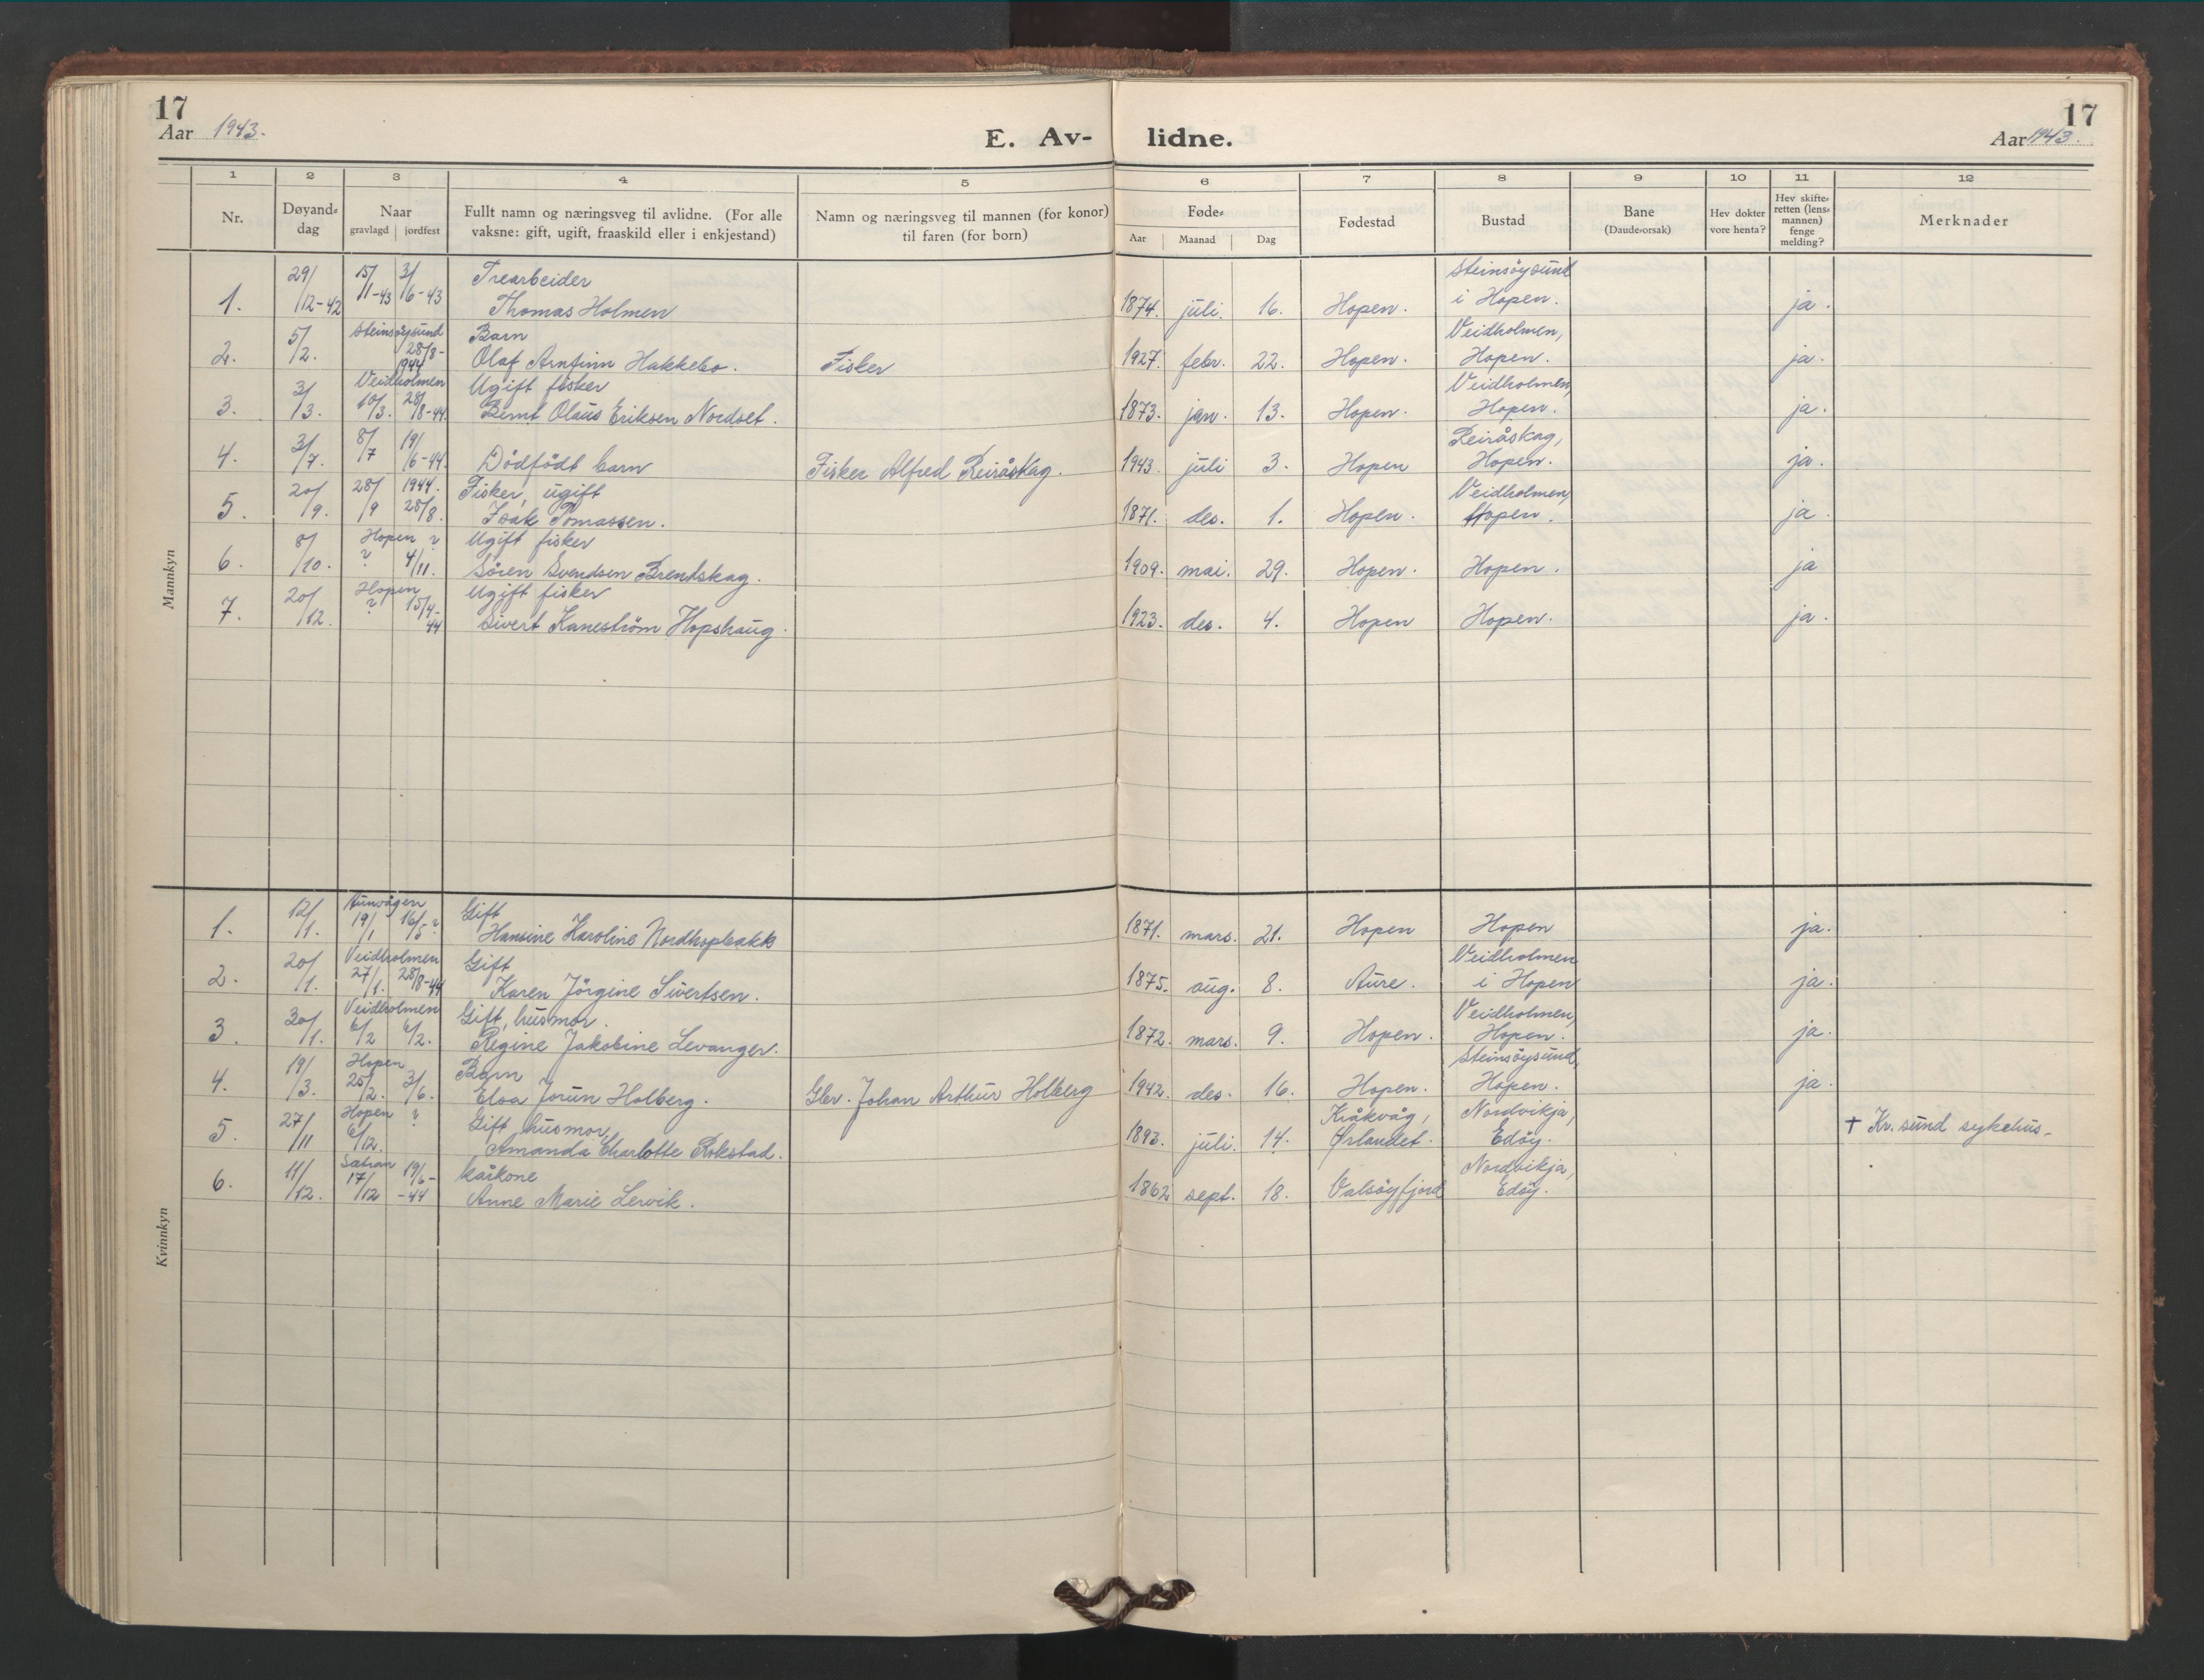 17
Aar 1943.
E. Av-
lidne.
17
Aar 1943.
1 2 3 4 5 6 7 8 9 10 11 12
Nr.
Døyand-
dag
Naar
gravlagd | jordfest
Fullt namn og næringsveg til avlidne. (For alle
vaksne: gift, ugift, fraaskild eller i enkjestand)
Namn og næringsveg til mannen (for konor)
til faren (for born)
Føde-
Aar | Maanad | Dag
Fødestad
Bustad
Bane
(Daude-orsak)
Hev dokter
vore henta?
Hev skifte-
retten (lens-
mannen)
fenge
melding?
Merknader
Mannkyn
29/ 15/ 3/ Trearbeider Steinsöysund
1. /12-42 /1-43 /6-43 Thomas Holmen 1874. juli. 16. Hopen. i Hopen. ja.
5/ Steinsöysund Barn Veidholmen,
2. /2. 28/8-1944 Olaf Arnfinn Hakkebo. Fisker 1927. febr. 22. Hopen. Hopen. ja.
3/ Veidholmen Ugift fisker Veidholmen,
3. /3. 10/3. 28/8-44 Bernt Olaus Eriksen Nordset. 1873. jan. 13. Hopen. Hopen. ja.
Reiråskag,
4. 3/7. 8/7 19/6-44. Dödfödt barn Fisker Alfred Reiråskag. 1943. juli 3. Hopen Hopen. ja.
20/ 28/ 1944. Fisker, ugift Veidholmen,
5. /9. /9 28/8. Isak Tomassen. 1871. des. 1. Hopen. Hopen. ja.
8/ Hopen ? Ugift fisker
6. /10. ? 4/11. Sören Svendsen Brendskag. 1909. mai. 29. Hopen. Hopen. ja
20/ Hopen Ugift fisker
7. /12. ? 15/4-44 Sivert Kaneström Hopshaug. 1923. des. 4. Hopen Hopen. ja.
Kvinnkyn
12/ Aunvågen Gift
1. /1. 19/1 16/5 ? Hansine Karoline Nordhopbakk 1871. mars. 21. Hopen Hopen ja.
20/ Veidholmen Gift Veidholmen
2. /1. 27/1. 28/8-44 Karen Jörgine Sivertsen. 1875. aug. 8. Aure. i Hopen ja.
30/ Veidholmen Gift, husmor. Veidholmen,
3. /1. 6/2 6/2. Regine Jakobine Levanger. 1872. mars. 9. Hopen. Hopen. ja.
19/ Hopen Barn Steinsöysund,
4. /3. 25/2. 3/6. Eloa Jorun Holberg. Gbr. Johan Arthur Holberg 1942. des. 16. Hopen. Hopen. ja.
27/ Hopen ? Gift husmor Kråkvåg, Nordvikja,
5. /11 6/12. Amanda Charlotte Rokstad. 1893. juli. 14. Ørlandet. Edöy. † Kr.sund sykehus-
11/ 17/ 19/6- kårkone Nordvikja,
6. /12. /12 -44 Anne Marie Lervik. 1862 sept. 18. Valsöyfjord Edöy.